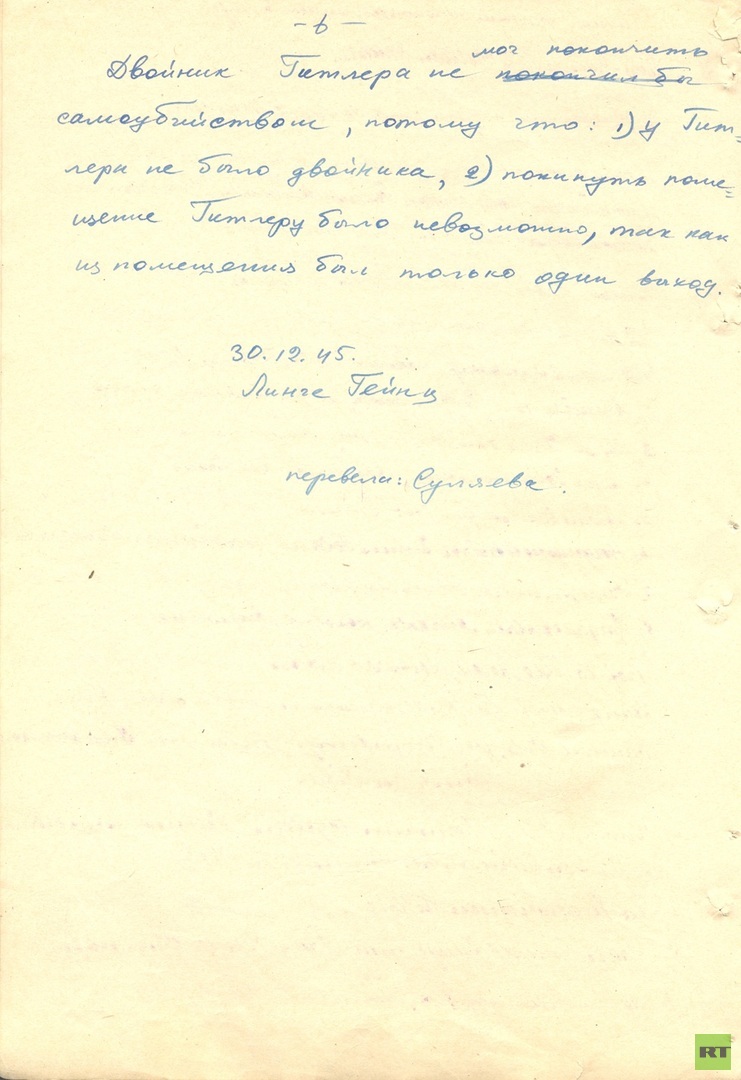 - 6 -
мог покончить
Двойник Гитлера не покончил бы
самоубийством, потому что: 1) у Гит=
лера не было двойника, 2) покинуть поме=
щение Гитлеру было невозможно, так как
из помещения был только один выход.
30.12.45.
Линге Гейнц
перевела: Суляева.
RT